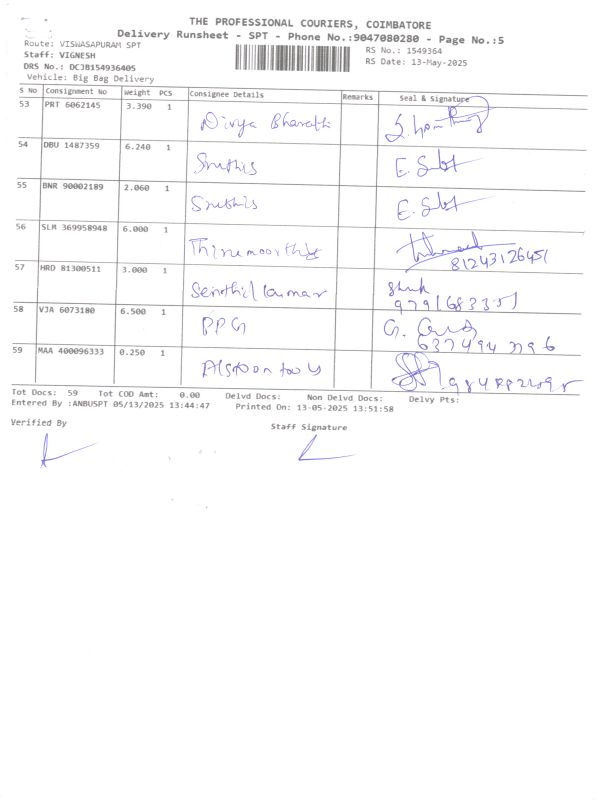 THE PROFESSIONAL COURIERS, COIMBATORE
Delivery Runsheet - SPT - Phone No.:9047080280 - Page No.:5
Route: VISWASAPURAM SPT
RS No.: 1549364
Staff: VIGNESH
RS Date: 13-May-2025
DRS No.: DCJB154936405
Vehicle: Big Bag Delivery
S No Consignment No Weight PCS Consignee Details Remarks Seal & Signature
53 PRT 6062145 3.390 1
Divya Bharathi
54 DBU 1487359 6.240 1
Sruthis E.
55 BNR 90002189 2.060 1
Sruthis E.
56 SLM 369958948 6.000 1
Thirumoorthy
81243126451
57 HRD 81300511 3.000 1
Senthil kumar
58 VJA 6073180 6.500 1
PPG G.
59 MAA 400096333 0.250 1
Tot Docs: 59 Tot COD Amt: 0.00 Delvd Docs: Non Delvd Docs: Delvy Pts:
Entered By :ANBUSPT 05/13/2025 13:44:47 Printed On: 13-05-2025 13:51:58
Verified By
Staff Signature